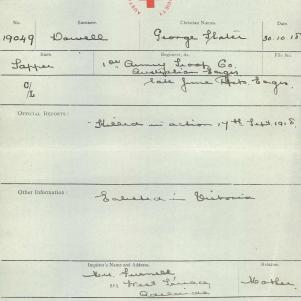 No. Surname. Christian Names.
19049 Dowell George Slater 30.10.18
Rank. Regiment, &c. File No.
Sapper 1st Army Troop Co.
Australian Engrs
C/L late June Rfts. Engrs.
OFFICIAL REPORTS:
Killed in action 17th Sept. 1918
Other Information:
Enlisted in Victoria
Inquirer's Name and Address. Relation.
Mrs.
West Terrace, Mother.
Adelaide